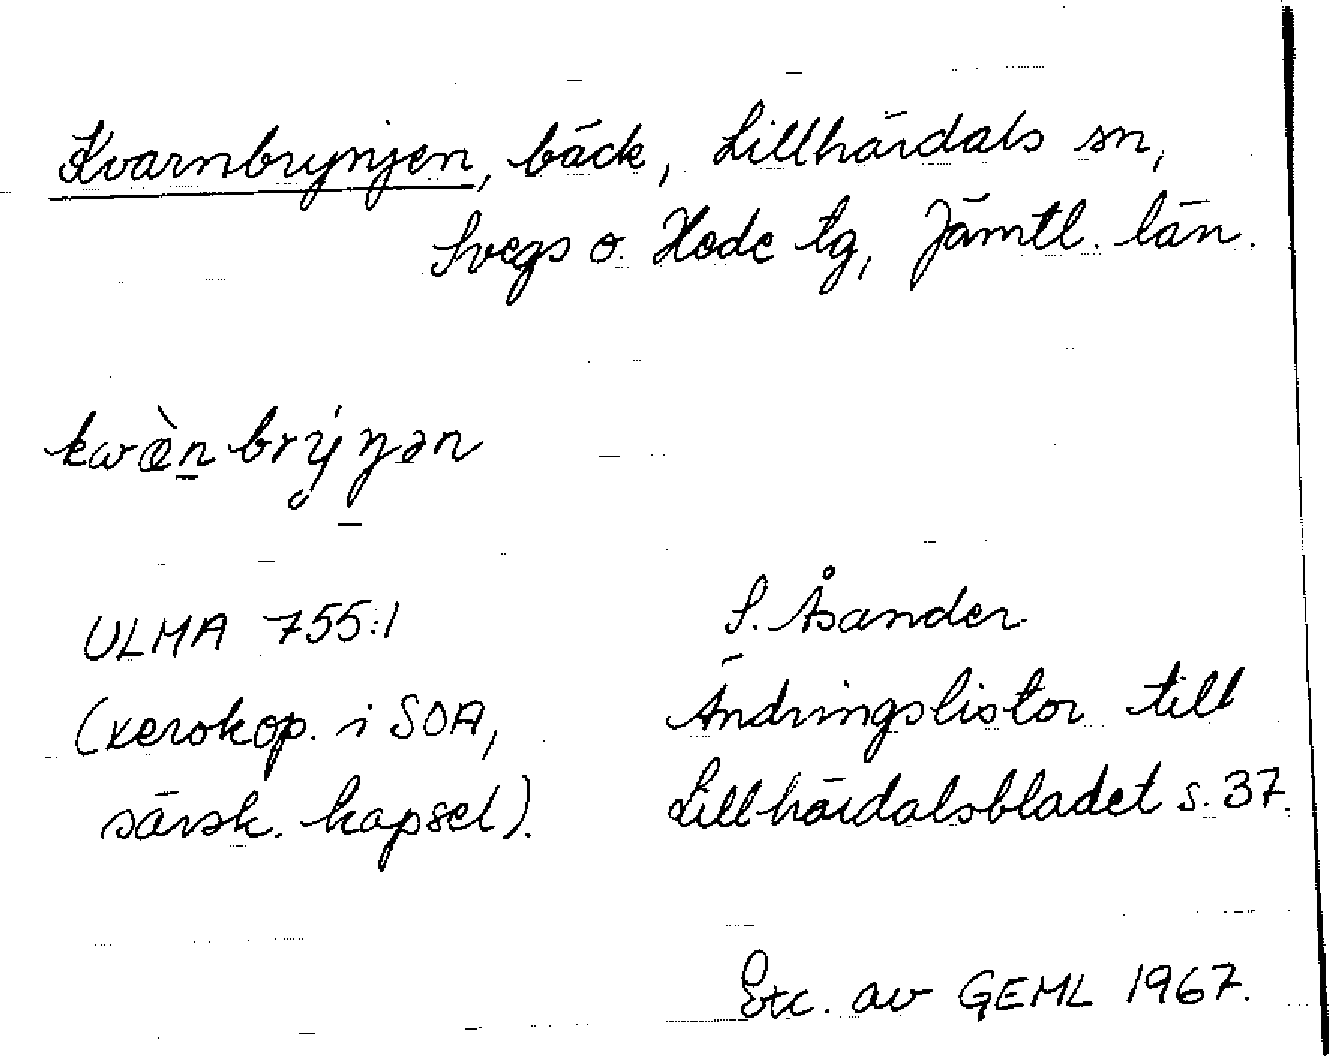 Kvarnbrynjen, bäck, Lillhärdals sn,
Svegs o. Hede tg, Jämtl. län.
kwæ̀n brýŋən
ULMA 755:1
(xerokop. i SOA,
särsk. kapsel).
S. Åsander
Ändringslistor till
Lillhärdalsbladet s. 37.
Exc. av GEML 1967.